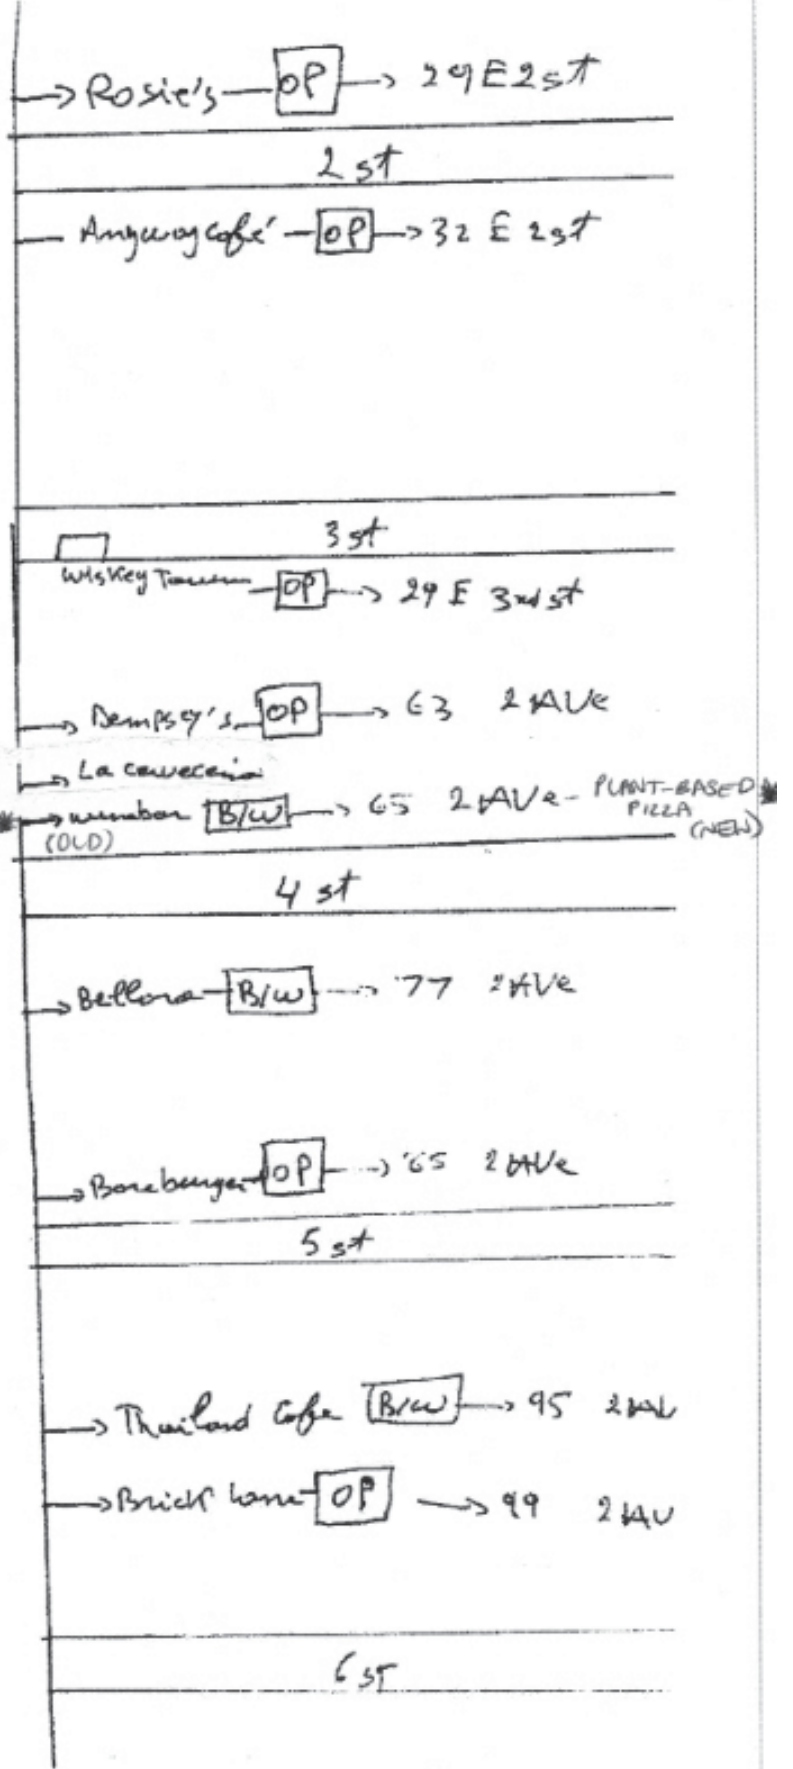 Rosie's OP 29 E 2 st
2 st
Anyway Café OP 32 E 2 st
3 st
Wiskey OP 29 E 3rd st
Dempsey's OP 63 2 AVe
La
B/W 65 2 AVe - PLANT-BASED PIZZA
(OLD) (NEW)
4 st
B/W 77 2 AVe
Bareburger OP 65 2 AVe
5 st
Thailand Cafe B/W 95 2
Brick Lane OP 99 2 AV
6 st